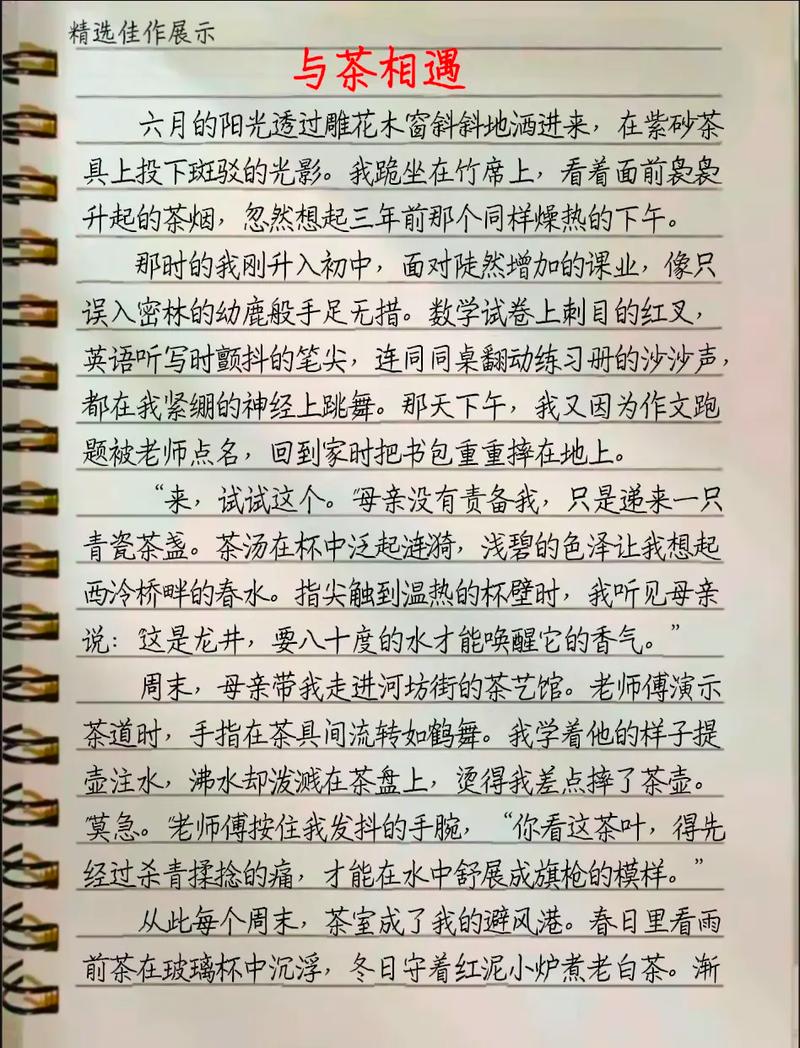 精选佳作展示
与茶相遇
六月的阳光透过雕花木窗斜斜地洒进来，在紫砂茶
具上投下斑驳的光影。我跪坐在竹席上，看着面前袅袅
升起的茶烟，忽然想起三年前那个同样燥热的下午。
那时的我刚升入初中，面对陡然增加的课业，像只
误入密林的幼鹿般手足无措。数学试卷上刺目的红叉，
英语听写时颤抖的笔尖，连同同桌翻动练习册的沙沙声，
都在我紧绷的神经上跳舞。那天下午，我又因为作文跑
题被老师点名，回到家时把书包重重摔在地上。
“来，试试这个。”母亲没有责备我，只是递来一只
青瓷茶盏。茶汤在杯中泛起涟漪，浅碧的色泽让我想起
西泠桥畔的春水。指尖触到温热的杯壁时，我听见母亲
说：“这是龙井，要八十度的水才能唤醒它的香气。”
周末，母亲带我走进河坊街的茶艺馆。老师傅演示
茶道时，手指在茶具间流转如鹤舞。我学着他的样子提
壶注水，沸水却泼溅在茶盘上，烫得我差点摔了茶壶。
“莫急。”老师傅按住我发抖的手腕，“你看这茶叶，得先
经过杀青揉捻的痛，才能在水中舒展成旗枪的模样。”
从此每个周末，茶室成了我的避风港。春日里看雨
前茶在玻璃杯中沉浮，冬日守着红泥小炉煮老白茶。渐